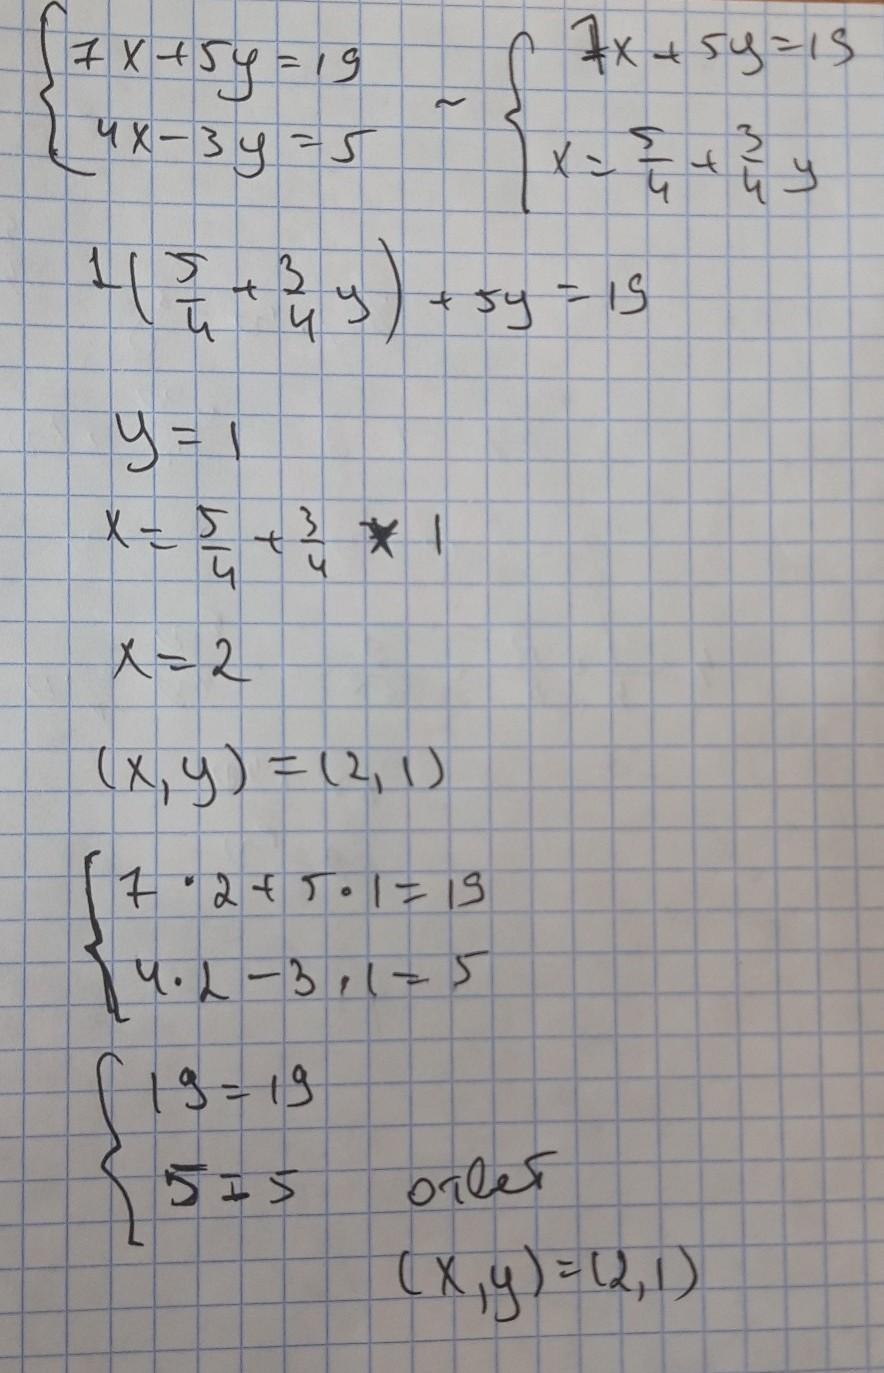 { 7x + 5y = 19 ~ { 7x + 5y = 19
4x - 3y = 5 x = 5/4 + 3/4 y
1(5/4 + 3/4 y) + 5y = 19
y = 1
x = 5/4 + 3/4 * 1
x = 2
(x, y) = (2, 1)
{ 7 · 2 + 5 · 1 = 19
4 · 2 - 3 · 1 = 5
{ 19 = 19
5 = 5 ответ
(x, y) = (2, 1)